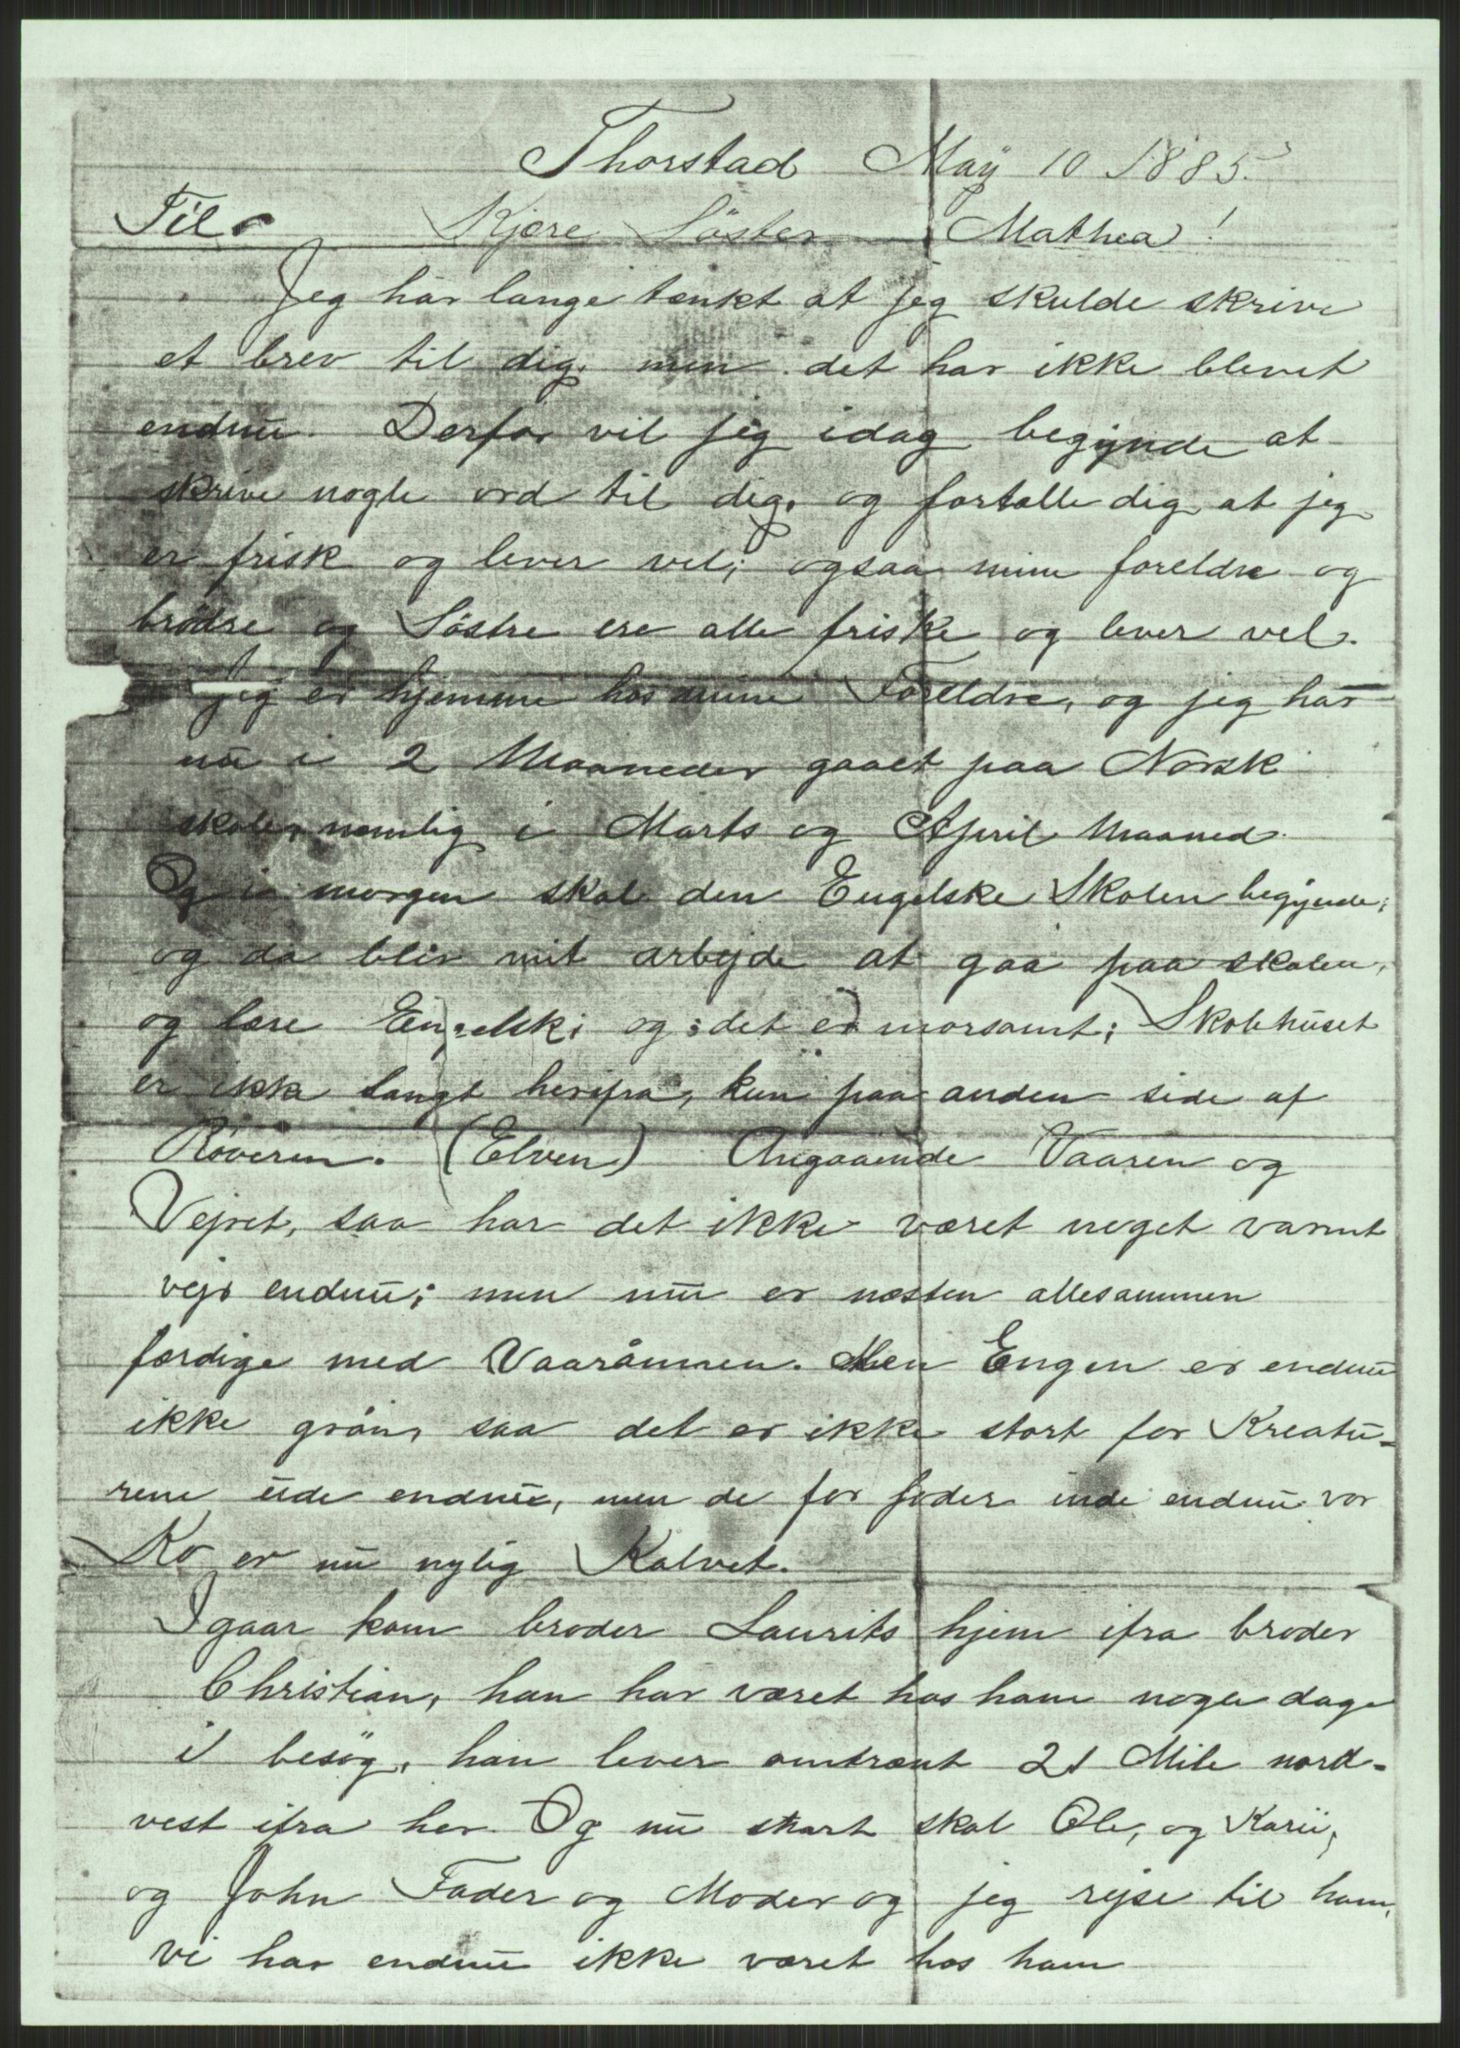 Thorstad May 10 1885.
Til Kjære Söster Mathea!
Jeg har lange tænkt at jeg skulde skrive
et brev til dig. men det har ikke blevet
endnu. Derfor vil jeg idag begynde at
skrive nogle ord til dig, og fortælle dig at jeg
er frisk og lever vel; ogsaa mine foreldre og
brödre og Söstre ere alle friske og lever vel.
Jeg er hjemme hos mine Foreldre, og jeg har
nu i 2 Maaneder gaaet paa Norsk
skole, nemlig i Marts og April Maaned.
Og i morgen skal den Engelske Skolen begynde;
og da blir mit arbejde at gaa paa skolen,
og lære Engelsk; og det er morsomt; Skolehuset
er ikke langt herifra, kun paa anden side af
Röveren. (Elven) Angaaende Vaaren og
Vejret, saa har det ikke været noget varmt
vejr endnu; men nu er næsten allesammen
færdige med Vaarånnen. Men Engen er endnu
ikke grön, saa det er ikke stort for Kreatu-
rene ude endnu, men de for foder inde endnu. vor
Ko er nu nylig Kalvet.
Igaar kom broder Laurits hjem ifra broder
Christian, han har været hos ham nogle dage
i besög, han lever omtrænt 21 Mile nord-
vest ifra her. Og nu snart skal Ole, og Kari,
og John Fader og Moder og jeg rejse til ham,
vi har endnu ikke været hos ham